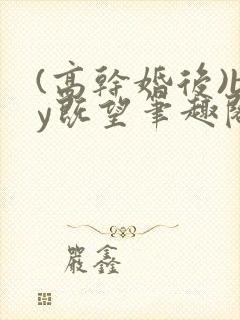 (高幹婚後)b
y既望筆趣閣
嚴鑫